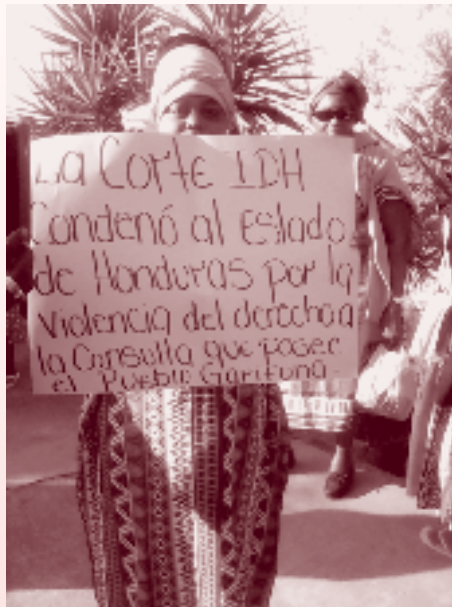 La Corte IDH
Condenó al Estado
de Honduras por la
Violencia del derecho a
la Consulta que posee
el Pueblo Garifuna